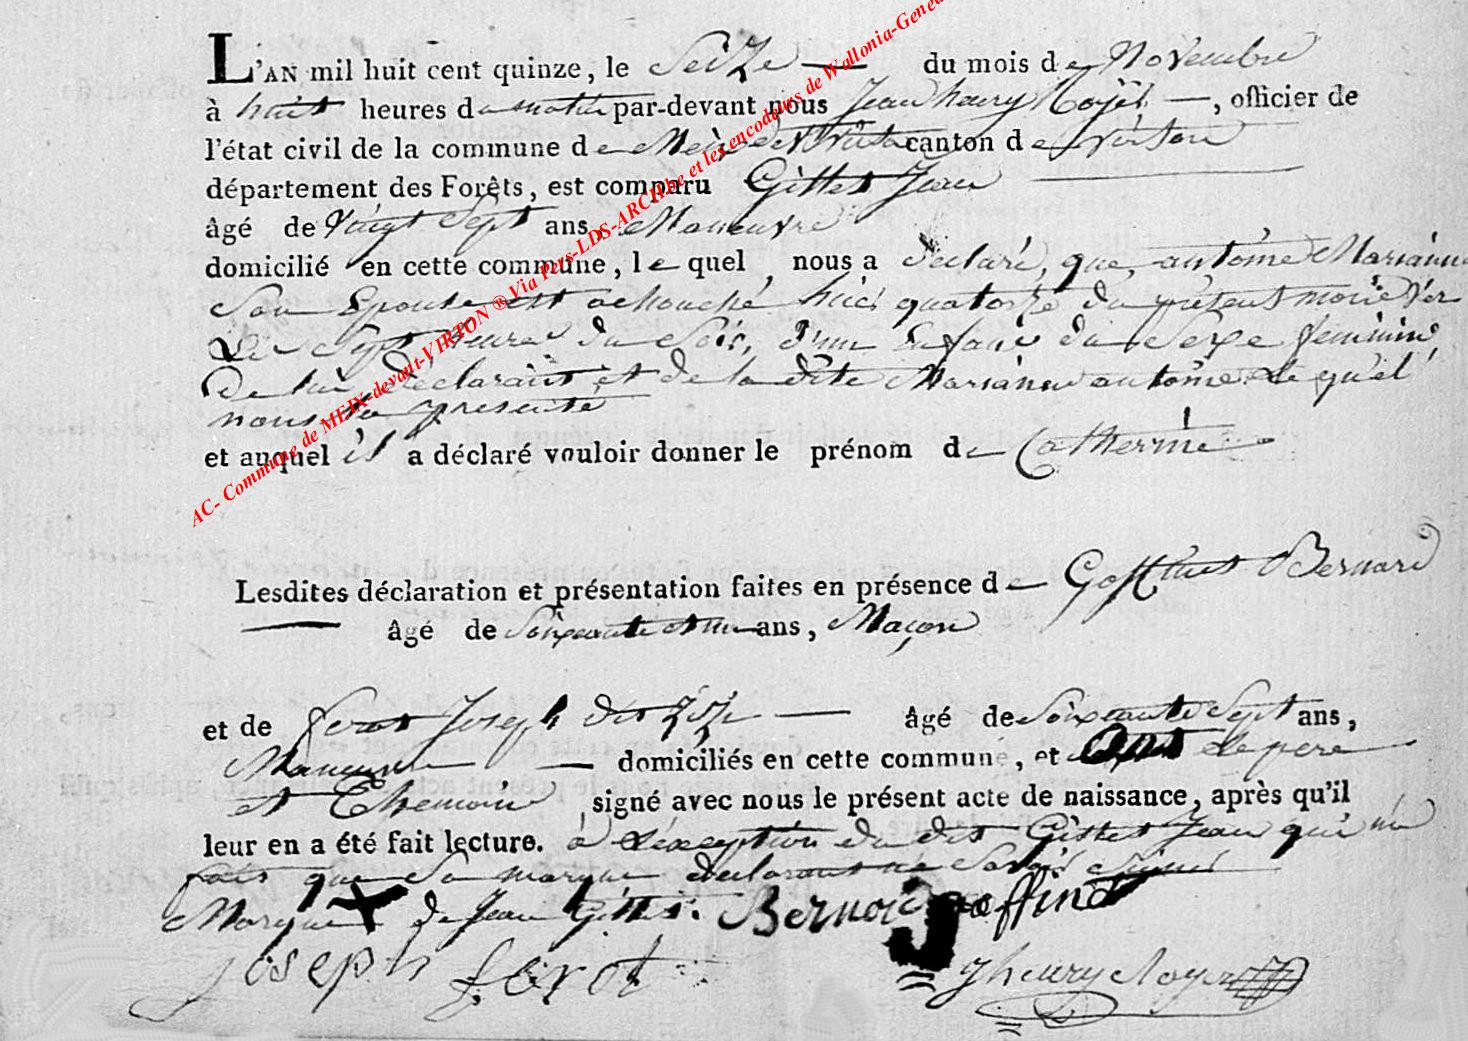 L'AN mil huit cent quinze, le Seize du mois de Novembre
à huit heures du matin par-devant nous Jean henry Royer, officier de
l'état civil de la commune de Meix dt Virton canton de virton
département des Forêts, est comparu Gillet Jean
âgé de vingt Sept ans, Maneuvre
domicilié en cette commune, le quel nous a déclaré, que antoine Marianne
Son Epouse est achouché hiei quatorze du présent mois vers
Les Sept heures du Soir, d'un Enfant du Sexe feminin
De lui déclarant et de la dite Marianne antoine le quel
nous la presenté
et auquel il a déclaré vouloir donner le prénom de Catherine
Lesdites déclaration et présentation faites en présence de Goffinet Bernard
âgé de Soixante et un ans, Maçon
et de ferot Joseph âgé de Soixante Sept ans,
Maneuvre domiciliés en cette commune, et ont le pere
et Themoin signé avec nous le présent acte de naissance, après qu'il
leur en a été fait lecture. à l'exception du dit Gillet Jean qui nà
fait que Sa marque declarant ne Savoir Signer
Marque de Jean Gillet. Bernard Goffinet
Joseph ferot
Jhenry Royer
AC- Commune de MEIX-devant-VIRTON ® Via Pers-LDS-ARCH.be et les encodeurs de Wallonia-Genea